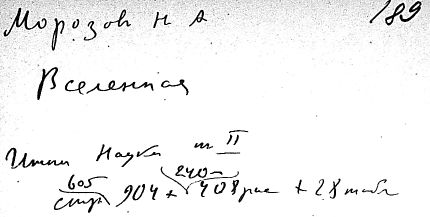 Морозов Н А 189
Вселенная
Итоги Науки т II
605 240
стр 904 + 408 рис + 28 табл